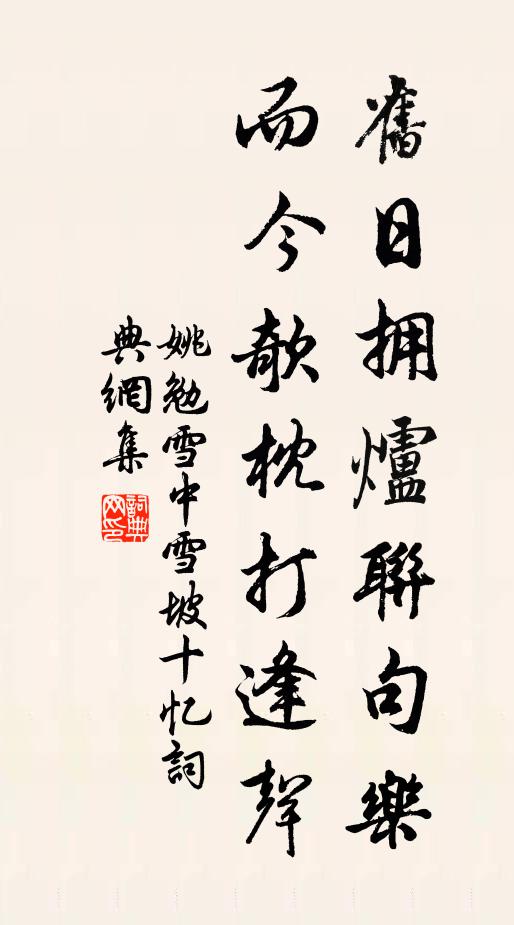 舊日擁爐聯句樂
而今欹枕打逢聲
姚勉雪中雪坡十忆詞
典網集
詞典網印